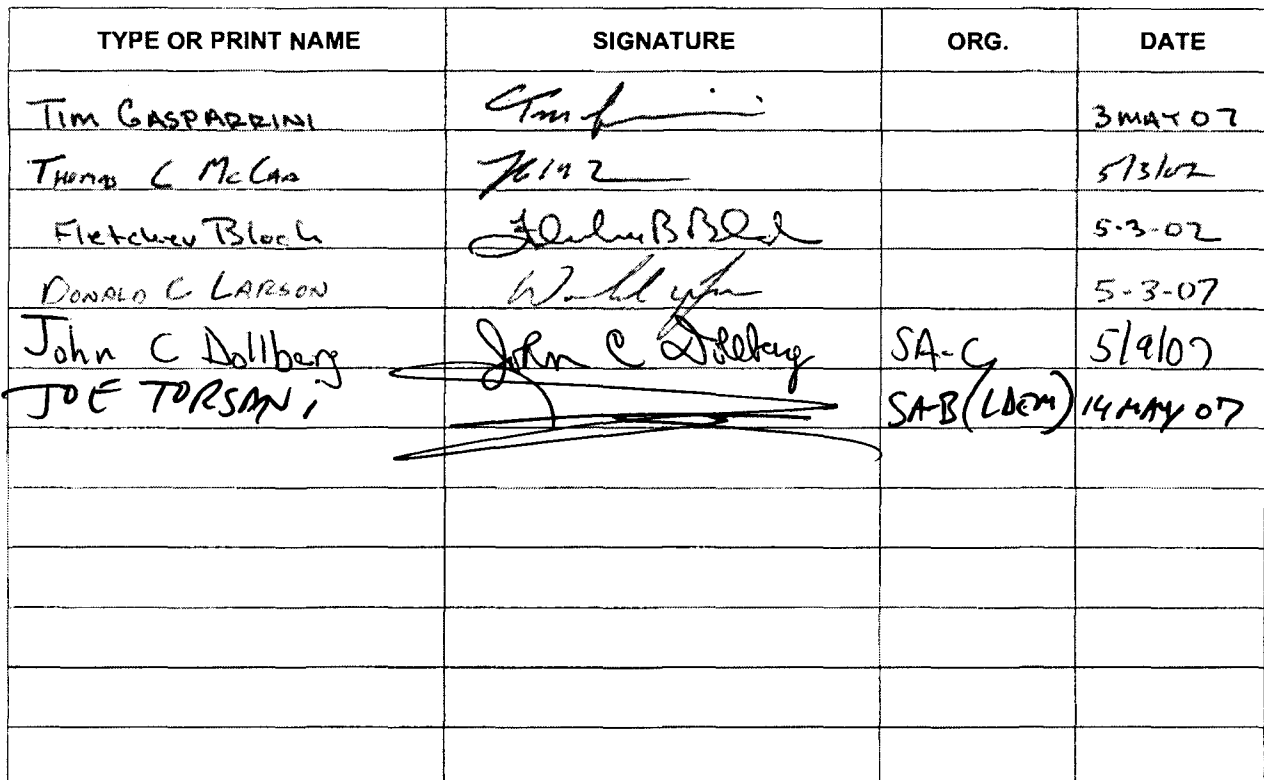 TYPE OR PRINT NAME SIGNATURE ORG. DATE
TIM GASPARRINI Tim 3 MAY 07
THOMAS C 5/3/07
Fletcher Block 5-3-07
DONALD C LARSON 5-3-07
John C Dollberg John C Dollberg SA-C 5/9/07
JOE TORSANI SA-B (LDEM) 14 MAY 07